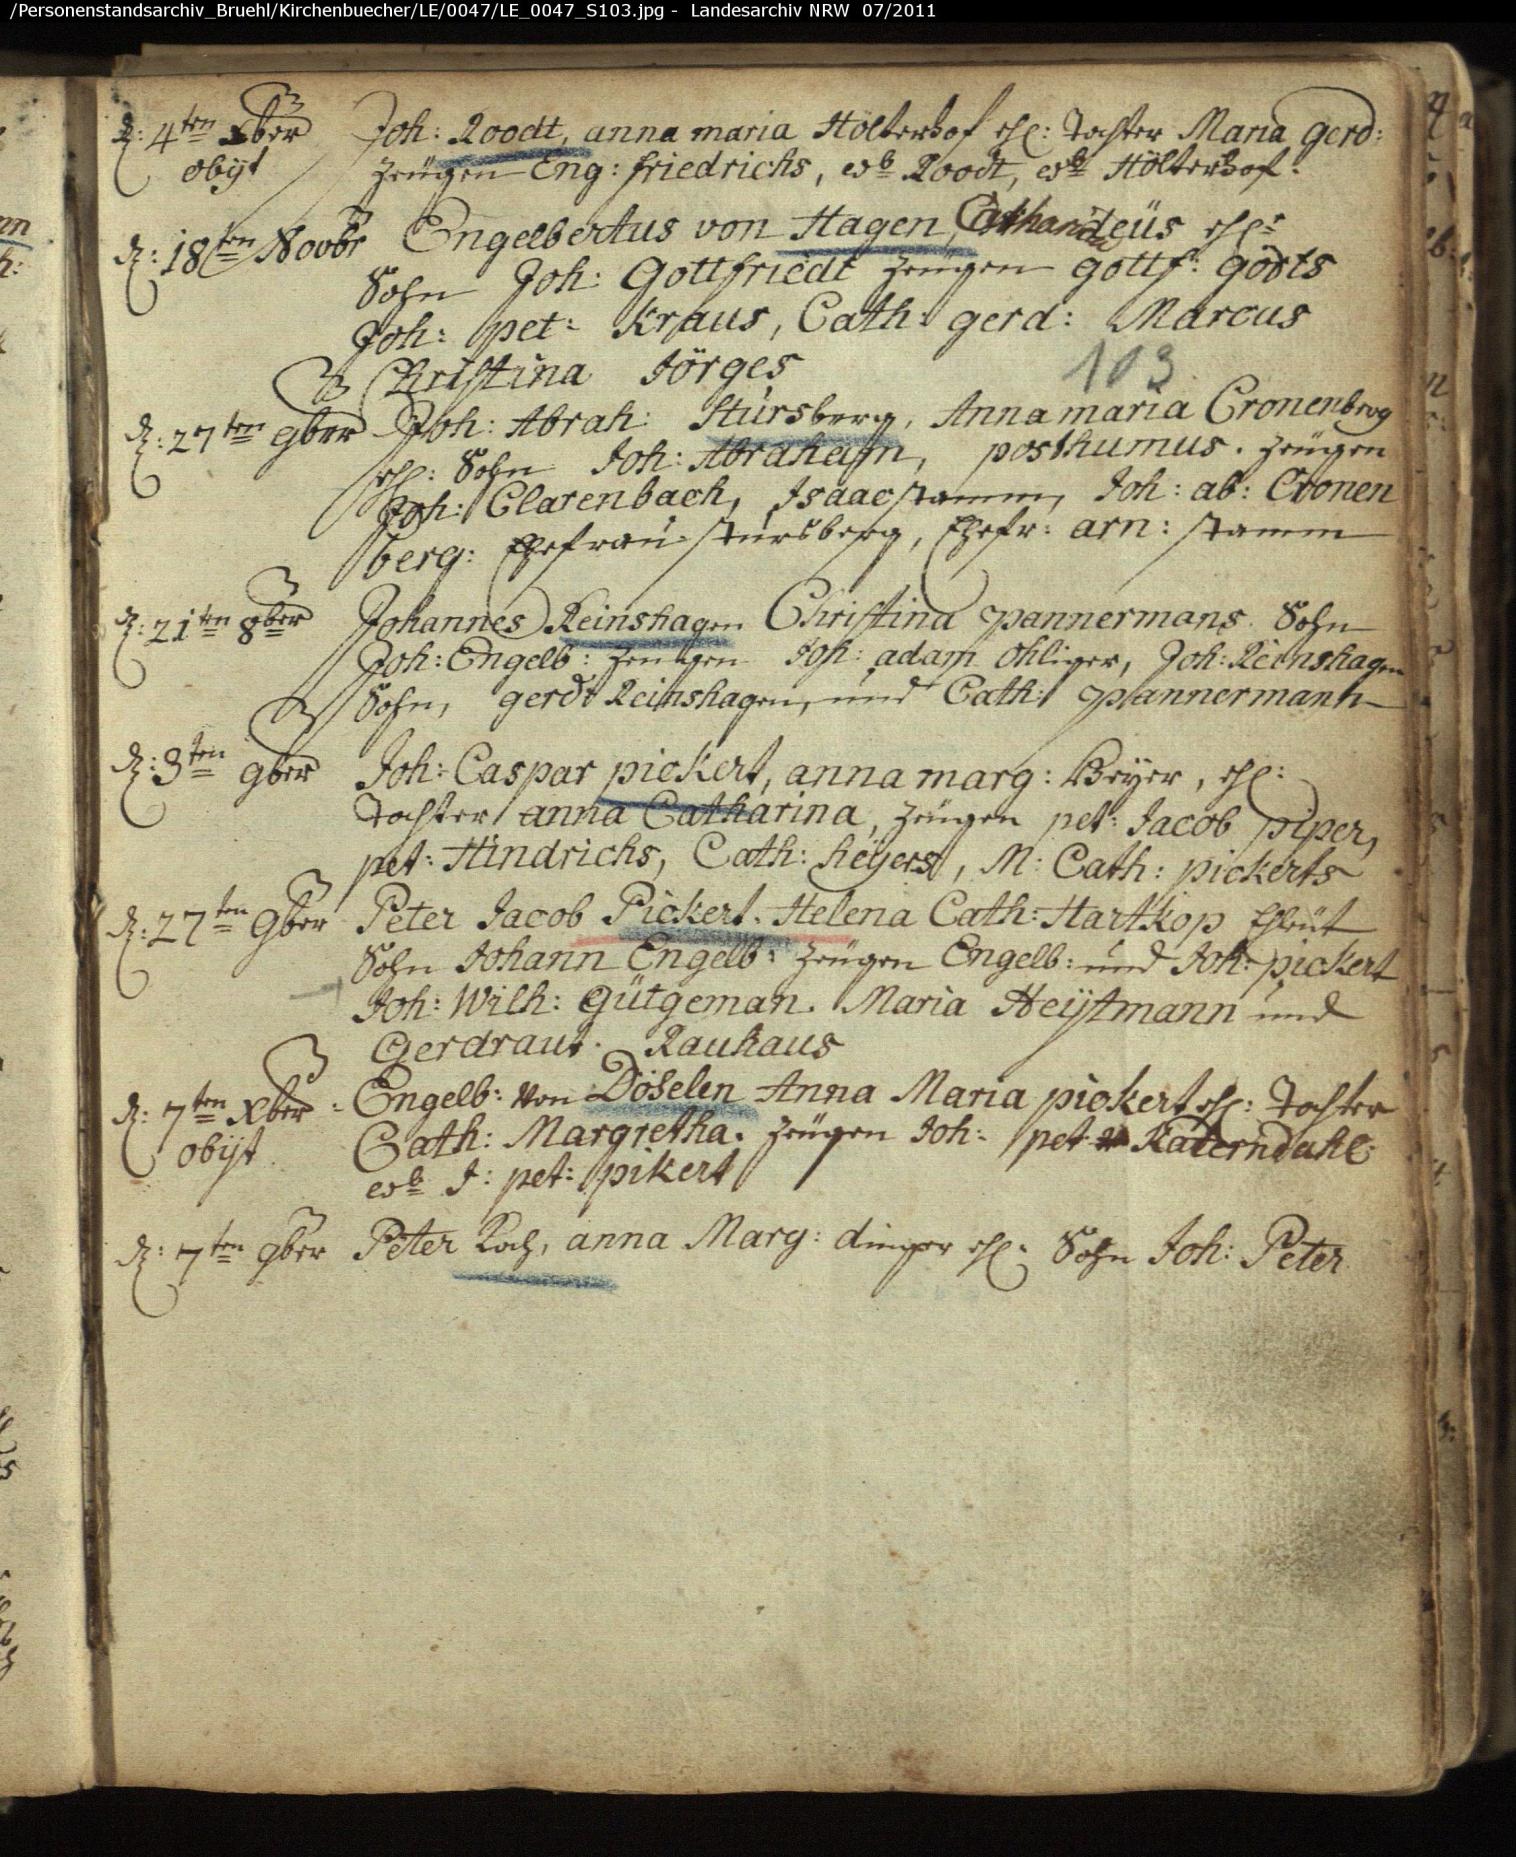 /Personenstandsarchiv_Bruehl/Kirchenbuecher/LE/0047/LE_0047_S103.jpg - Landesarchiv NRW 07/2011
d: 4ten xber Joh: Roodt, anna maria Hölterhof ehl: Tochter Maria gerd:
obijt Zeügen Eng: friedrichs, Roodt, Hölterhof.
d: 18ten Novbr Engelbertus von Hagen, ehl:
Sohn Joh: Gottfriedt Zeügen gottf: Görts
Joh: pet: Kraus, Cath: gerd: Marcus
Christina Jörges
103
d: 27ten 9ber Joh: Abrah: Stursberg, Anna maria Cronenberg
ehl: Sohn Joh: Abraham, posthumus. Zeügen
Joh: Clarenbach, Isaac stamm, Joh: ab: Cronen
berg: Ehefrau stursberg, Ehefr: arn: stamm
d: 21ten 8ber Johannes Reinshagen Christina pannermans Sohn
Joh: Engelb: Zeugen Joh: adam ohliger, Joh: Reinshagen
Sohn, gerdt Reinshagen, und Cath: pannermann
d: 3ten 9ber Joh: Caspar pickert, anna marg: Beyer, ehl:
Tochter anna Catharina, Zeügen pet: Jacob piper,
pet: Hindrichs, Cath: heÿers, M: Cath: pickerts
d: 27ten 9ber Peter Jacob Pickert. Helena Cath: Hartkop Ehleüt
Sohn Johann Engelb: Zeügen Engelb: und Joh: pickert
Joh: Wilh: Gütgeman. Maria Heijtmann und
Gerdraut. Rauhaus
d: 7ten xber Engelb: von Döselen Anna Maria pickert ehl: Tochter
obijt Cath: Margretha. Zeügen Joh: pet Katerndahl
J: pet: pikert
d: 7ten 9ber Peter Koch, anna Marg: dinger ehl: Sohn Joh: Peter